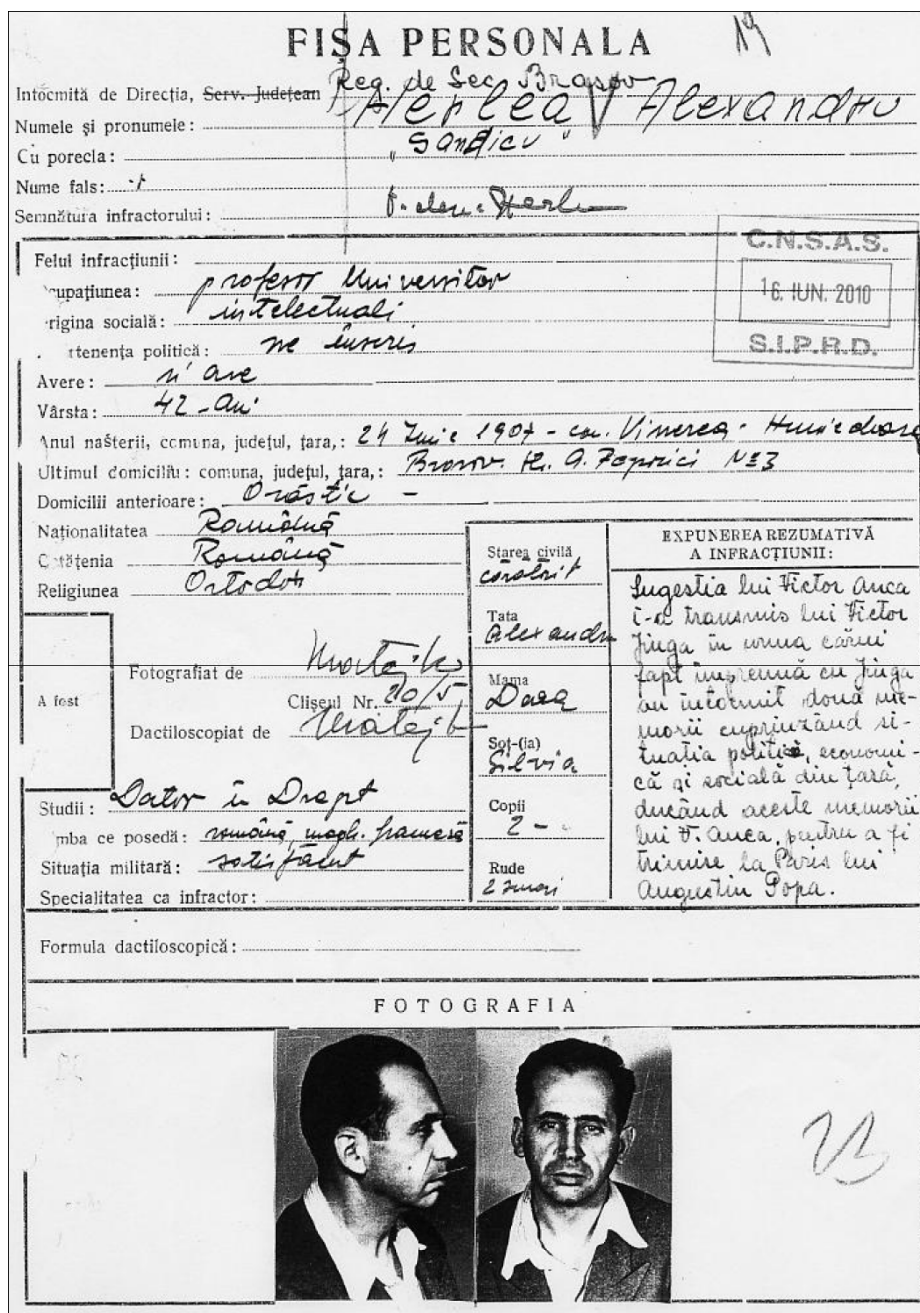 19
FIȘA PERSONALA
Intocmită de Direcția, Serv. Județean Reg. de Sec. Brașov
Numele și pronumele: Herlea V Alexandru
Cu porecla: "Sandicu"
Nume fals:
Semnătura infractorului:
C.N.S.A.S.
16. IUN. 2010
S.I.P.R.D.
Felul infracțiunii:
cupațiunea: profesor Universitar
rigina socială: intelectuali
rtenența politică: ne înscris
Avere: n'are
Vârsta: 42 - ani
Anul nașterii, comuna, județul, țara,: 24 Iunie 1907 - com. Vinerea - Hunedoara
Ultimul domiciliu: comuna, județul, țara,: Brașov. Str. No 3
Domicilii anterioare: Orăștie -
Naționalitatea Română
Cetățenia Română
Religiunea Ortodox
A fost
Fotografiat de
Clișeul Nr. 20/5
Dactiloscopiat de
Studii: Doctor în Drept
mba ce posedă: română, magh. franceză
Situația militară: satisfăcut
Specialitatea ca infractor:
Starea civilă
căsătorit
Tata
Alexandru
Mama
Soț-(ia)
Silvia
Copii
2 -
Rude
2
EXPUNEREA REZUMATIVĂ
A INFRACȚIUNII:
Sugestia lui Victor Anca
i-a transmis lui Victor
Jinga în urma cărui
fapt împreună cu Jinga
au întocmit două me-
morii cuprinzând si-
tuația politică, economi-
că și socială din țară,
ducând aceste memorii
lui V. Anca, pentru a fi
trimise la Paris lui
Augustin Popa.
Formula dactiloscopică:
FOTOGRAFIA